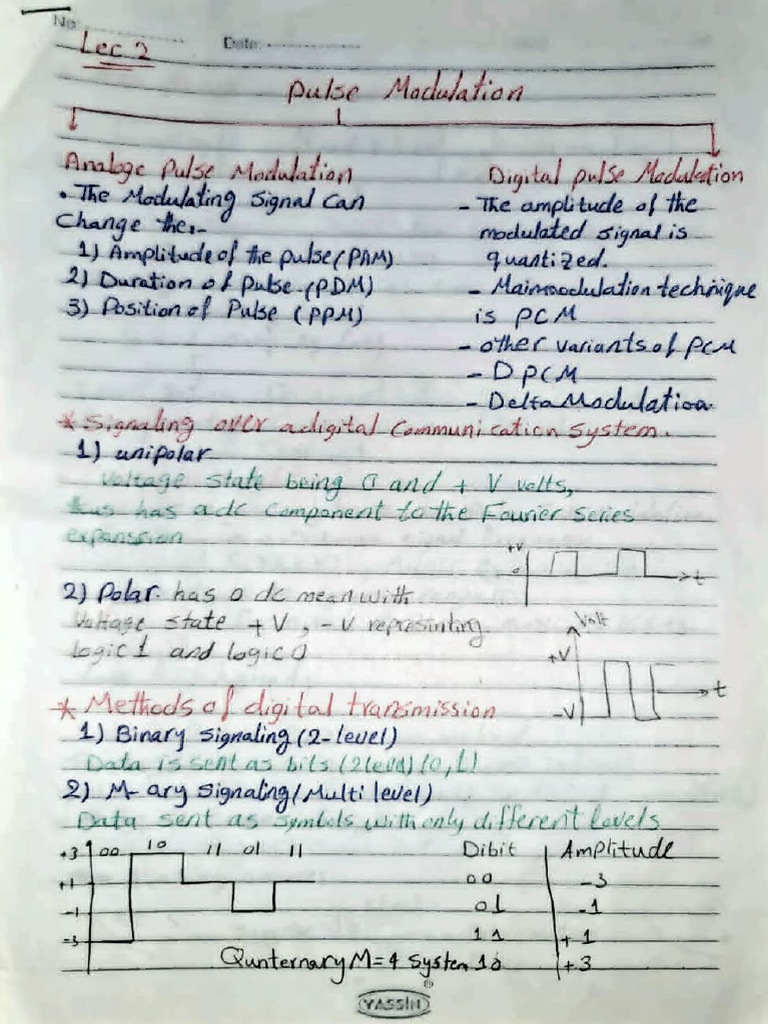 No.
Date:
Lec 2
Pulse Modulation
Analoge Pulse Modulation
• The Modulating Signal Can
Change the:-
1) Amplitude of the pulse (PAM)
2) Duration of Pulse (PDM)
3) Position of Pulse (PPM)
Digital pulse Modulation
- The amplitude of the
modulated signal is
quantized.
- Main modulation technique
is PCM
- other variants of PCM
- DPCM
- Delta Modulation.
* Signaling over a digital Communication System.
1) unipolar
Voltage state being 0 and + V volts,
has a dc Component to the Fourier Series
expanssion
+V
0
t
2) Polar. has 0 dc mean with
Voltage state +V, -V represinting
logic 1 and logic 0
Volt
+V
-V
t
* Methods of digital transmission
1) Binary Signaling (2-level)
Data is sent as bits (2 level) (0,1)
2) M-ary Signaling (Multi level)
Data sent as Symbols with only different Levels
+3 00 10 11 01 11
+1
-1
-3
Dibit Amplitude
00 -3
01 -1
11 +1
10 +3
Qunternary M=4 System
YASSIN